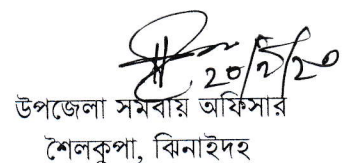 ২০/২/২০
উপজেলা সমবায় অফিসার
শৈলকুপা, ঝিনাইদহ